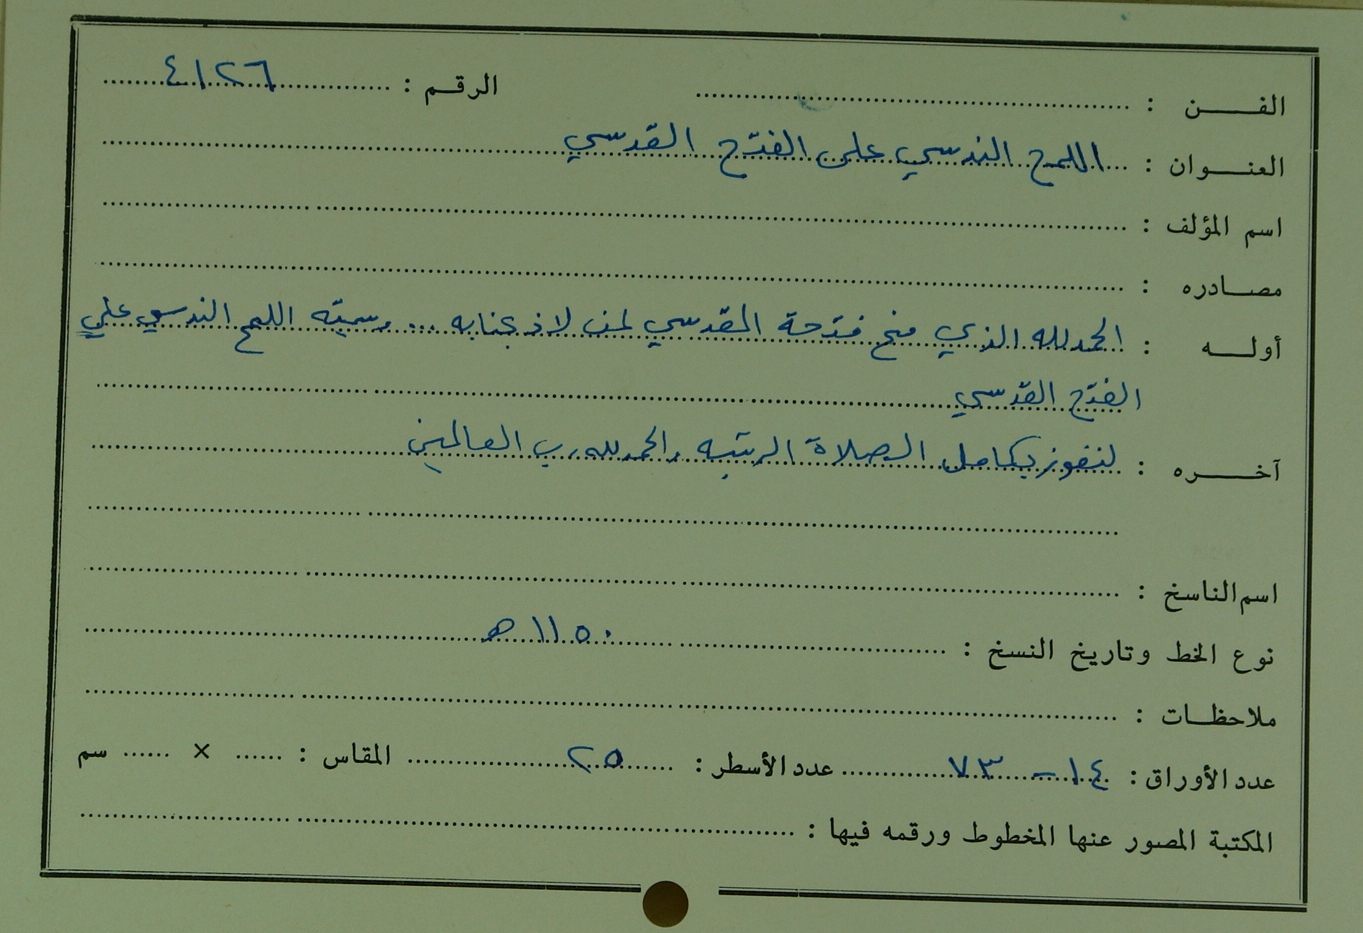 الفن : الرقم : ٤١٢٦
العنوان : اللمح الندسي على الفتح القدسي
اسم المؤلف :
مصادره :
أوله : الحمد لله الذي منح فتحة المقدسي لمن لاذ بجنابه ... وسميته اللمح الندسي علي
الفتح القدسي
آخره : لنفوز بكامل الصلاة الرتبه والحمد لله رب العالمين
اسم الناسخ :
نوع الخط وتاريخ النسخ : ١١٥٠ هـ
ملاحظات :
عدد الأوراق : ١٤ - ٧٣ عدد الأسطر : ٢٥ المقاس : × سم
المكتبة المصور عنها المخطوط ورقمه فيها :